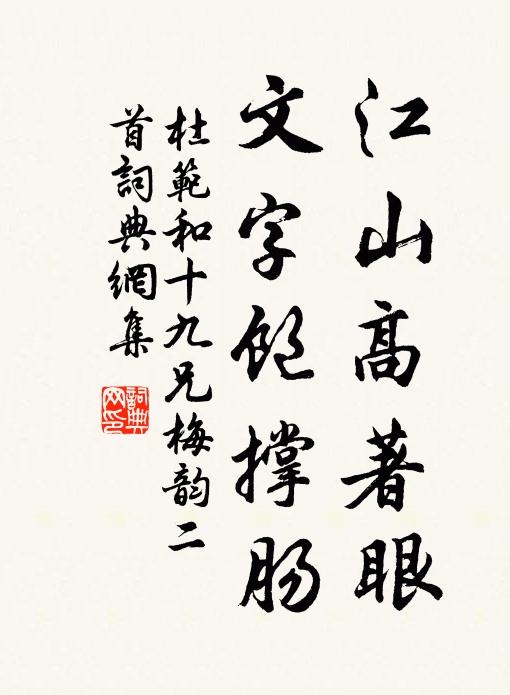 江山高著眼
文字飽撑肠
杜範和十九兄梅韵二
首詞典網集
詞典
网印